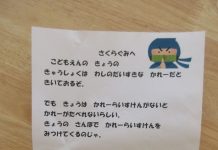 さくらぐみへ
こどもえんの きょうの
きゅうしょくは わしのだいすきな かれーだと
きいておるぞ。
でも きょうは かれーらいすけんがないと
かれーがたべれないらしい。
きょうの さんぽで かれーらいすけんを
みつけてくるのじゃ。